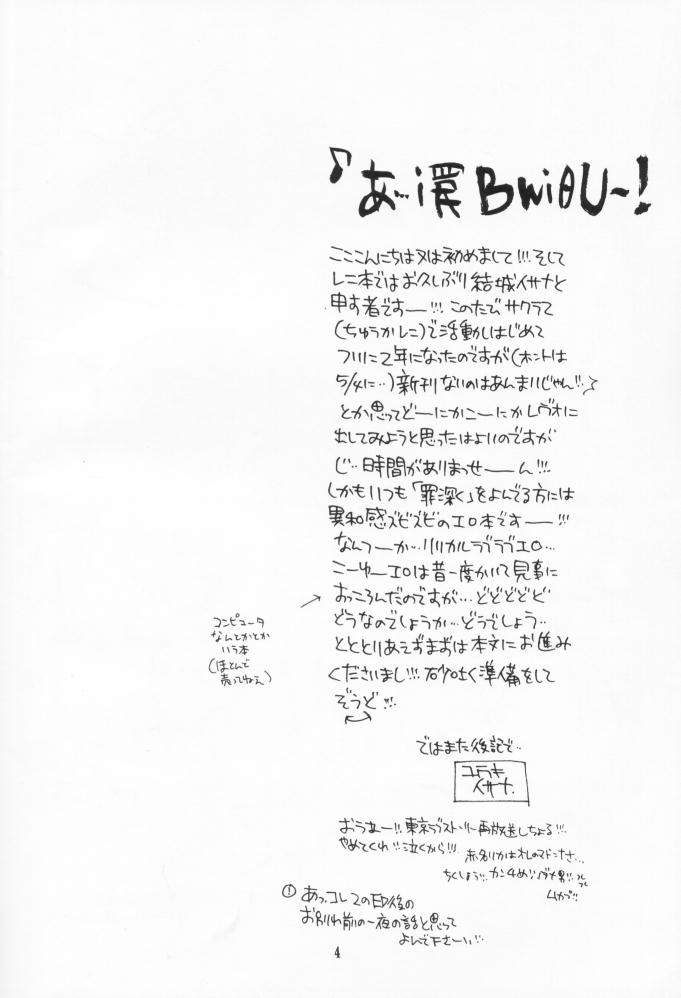 『あ…i罠BWiθU〜!
こここんにちは又は初めまして!!!そして
レニ本ではお久しぶり結城イサナと
申す者ですー!!!このたびサクラで
(ちゅうかレニ)で活動しはじめて
ついに2年になったのですが(ホントは
5/4に…)新刊ないのはあんまいじゃん!!
とか思ってどーにかこーにかレヴォに
出してみようと思ったはよいのですが
じ…時間がありまっせーーん!!!
しかもいつも「罪深く」をよんでる方には
異和感ズビズビのエロ本ですー!!!
なんつーか…リリカルラブラブエロ…
こーゆーエロは昔一度かいて見事に
おっころんだのですが…どどどどど
どうなのでしょうか…どうでしょう…
とととりあえずまずは本文にお進み
くださいまし!!!砂吐く準備をして
ぞうど!!!
コンピュータ
なんとかとか
いう本
(ほとんど
売ってねえ)
ではまた後記で…
ユウキ
イサナ
おうねー!!東京ラブストーリー再放送しちょる!!!
やめてくれ!!泣くから!!!
赤名リカはオレのマドンナさ…
ちくしょう!!カンチめ
ムカプ!!
! あっコレ2の印後の
お別れ前の一夜の話と思って
よんで下さーい!!
4